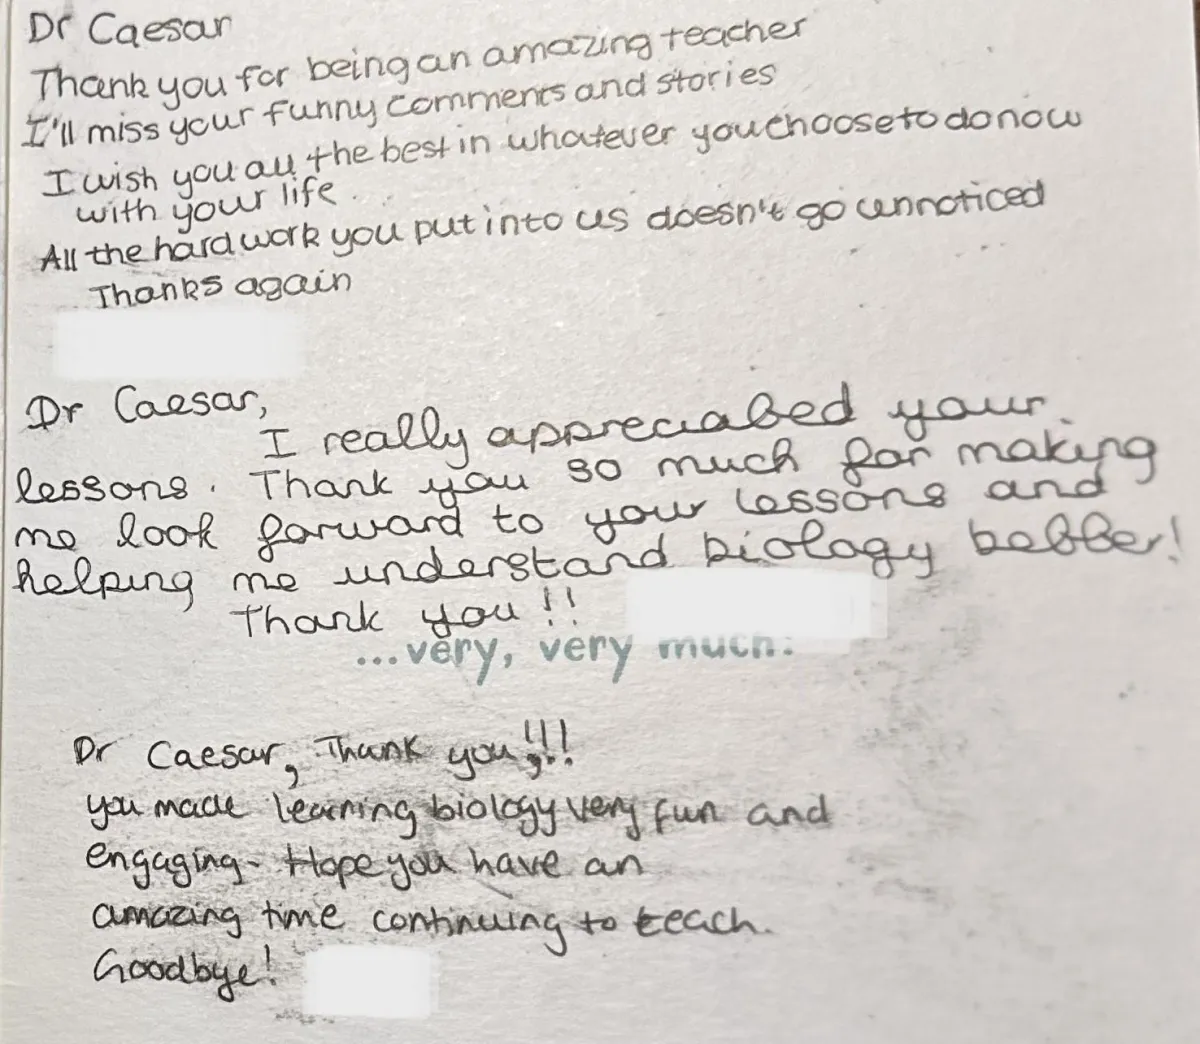 Dr Caesar
Thank you for being an amazing teacher
I'll miss your funny comments and stories
I wish you all the best in whatever you choose to do now
with your life.
All the hard work you put into us doesn't go unnoticed
Thanks again
Dr Caesar,
I really appreciated your
lessons. Thank you so much for making
me look forward to your lessons and
helping me understand biology better!
Thank you!!
...very, very much.
Dr Caesar, Thank you!!!
you made learning biology very fun and
engaging. Hope you have an
amazing time continuing to teach.
Goodbye!